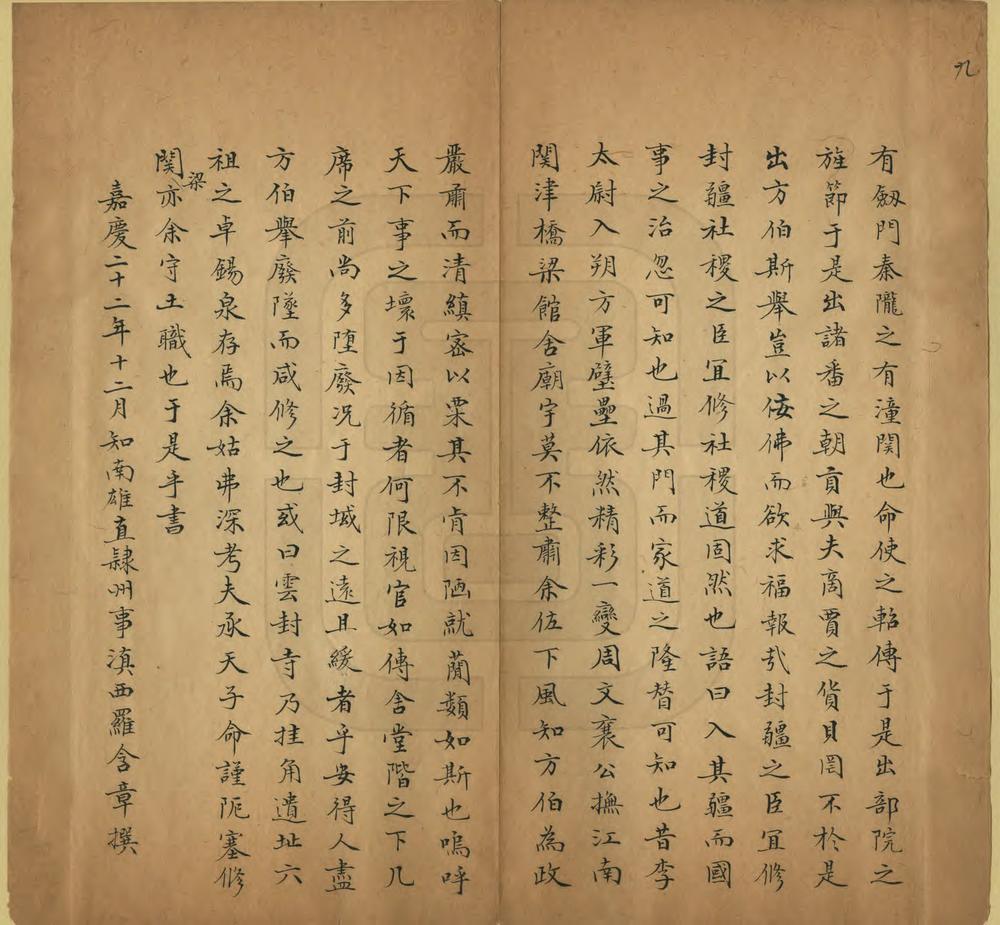 九
有劔門秦隴之有潼関也命使之軺傳于是出部院之
旌節于是出諸番之朝貢與夫商賈之貨貝罔不於是
出方伯斯舉豈以佞佛而欲求福報哉封疆之臣宜修
封疆社稷之臣宜修社稷道固然也語曰入其疆而國
事之治忽可知也過其門而家道之隆替可知也昔李
太尉入朔方軍壁壘依然精彩一變周文襄公撫江南
関津橋梁館舍廟宇莫不整肅余佐下風知方伯為政
嚴肅而清縝宻以栗其不肯因陋就蕳類如斯也嗚呼
天下事之壞于因循者何限視官如傳舍堂階之下几
席之前尚多堕廢況于封域之遠且緩者乎安得人盡
方伯舉廢墜而咸修之也或曰雲封寺乃挂角遺址六
祖之卓錫泉存焉余姑弗深考夫承天子命謹阨塞修
関梁亦余守土職也于是乎書
嘉慶二十二年十二月知南雄直隸州事滇西羅含章撰